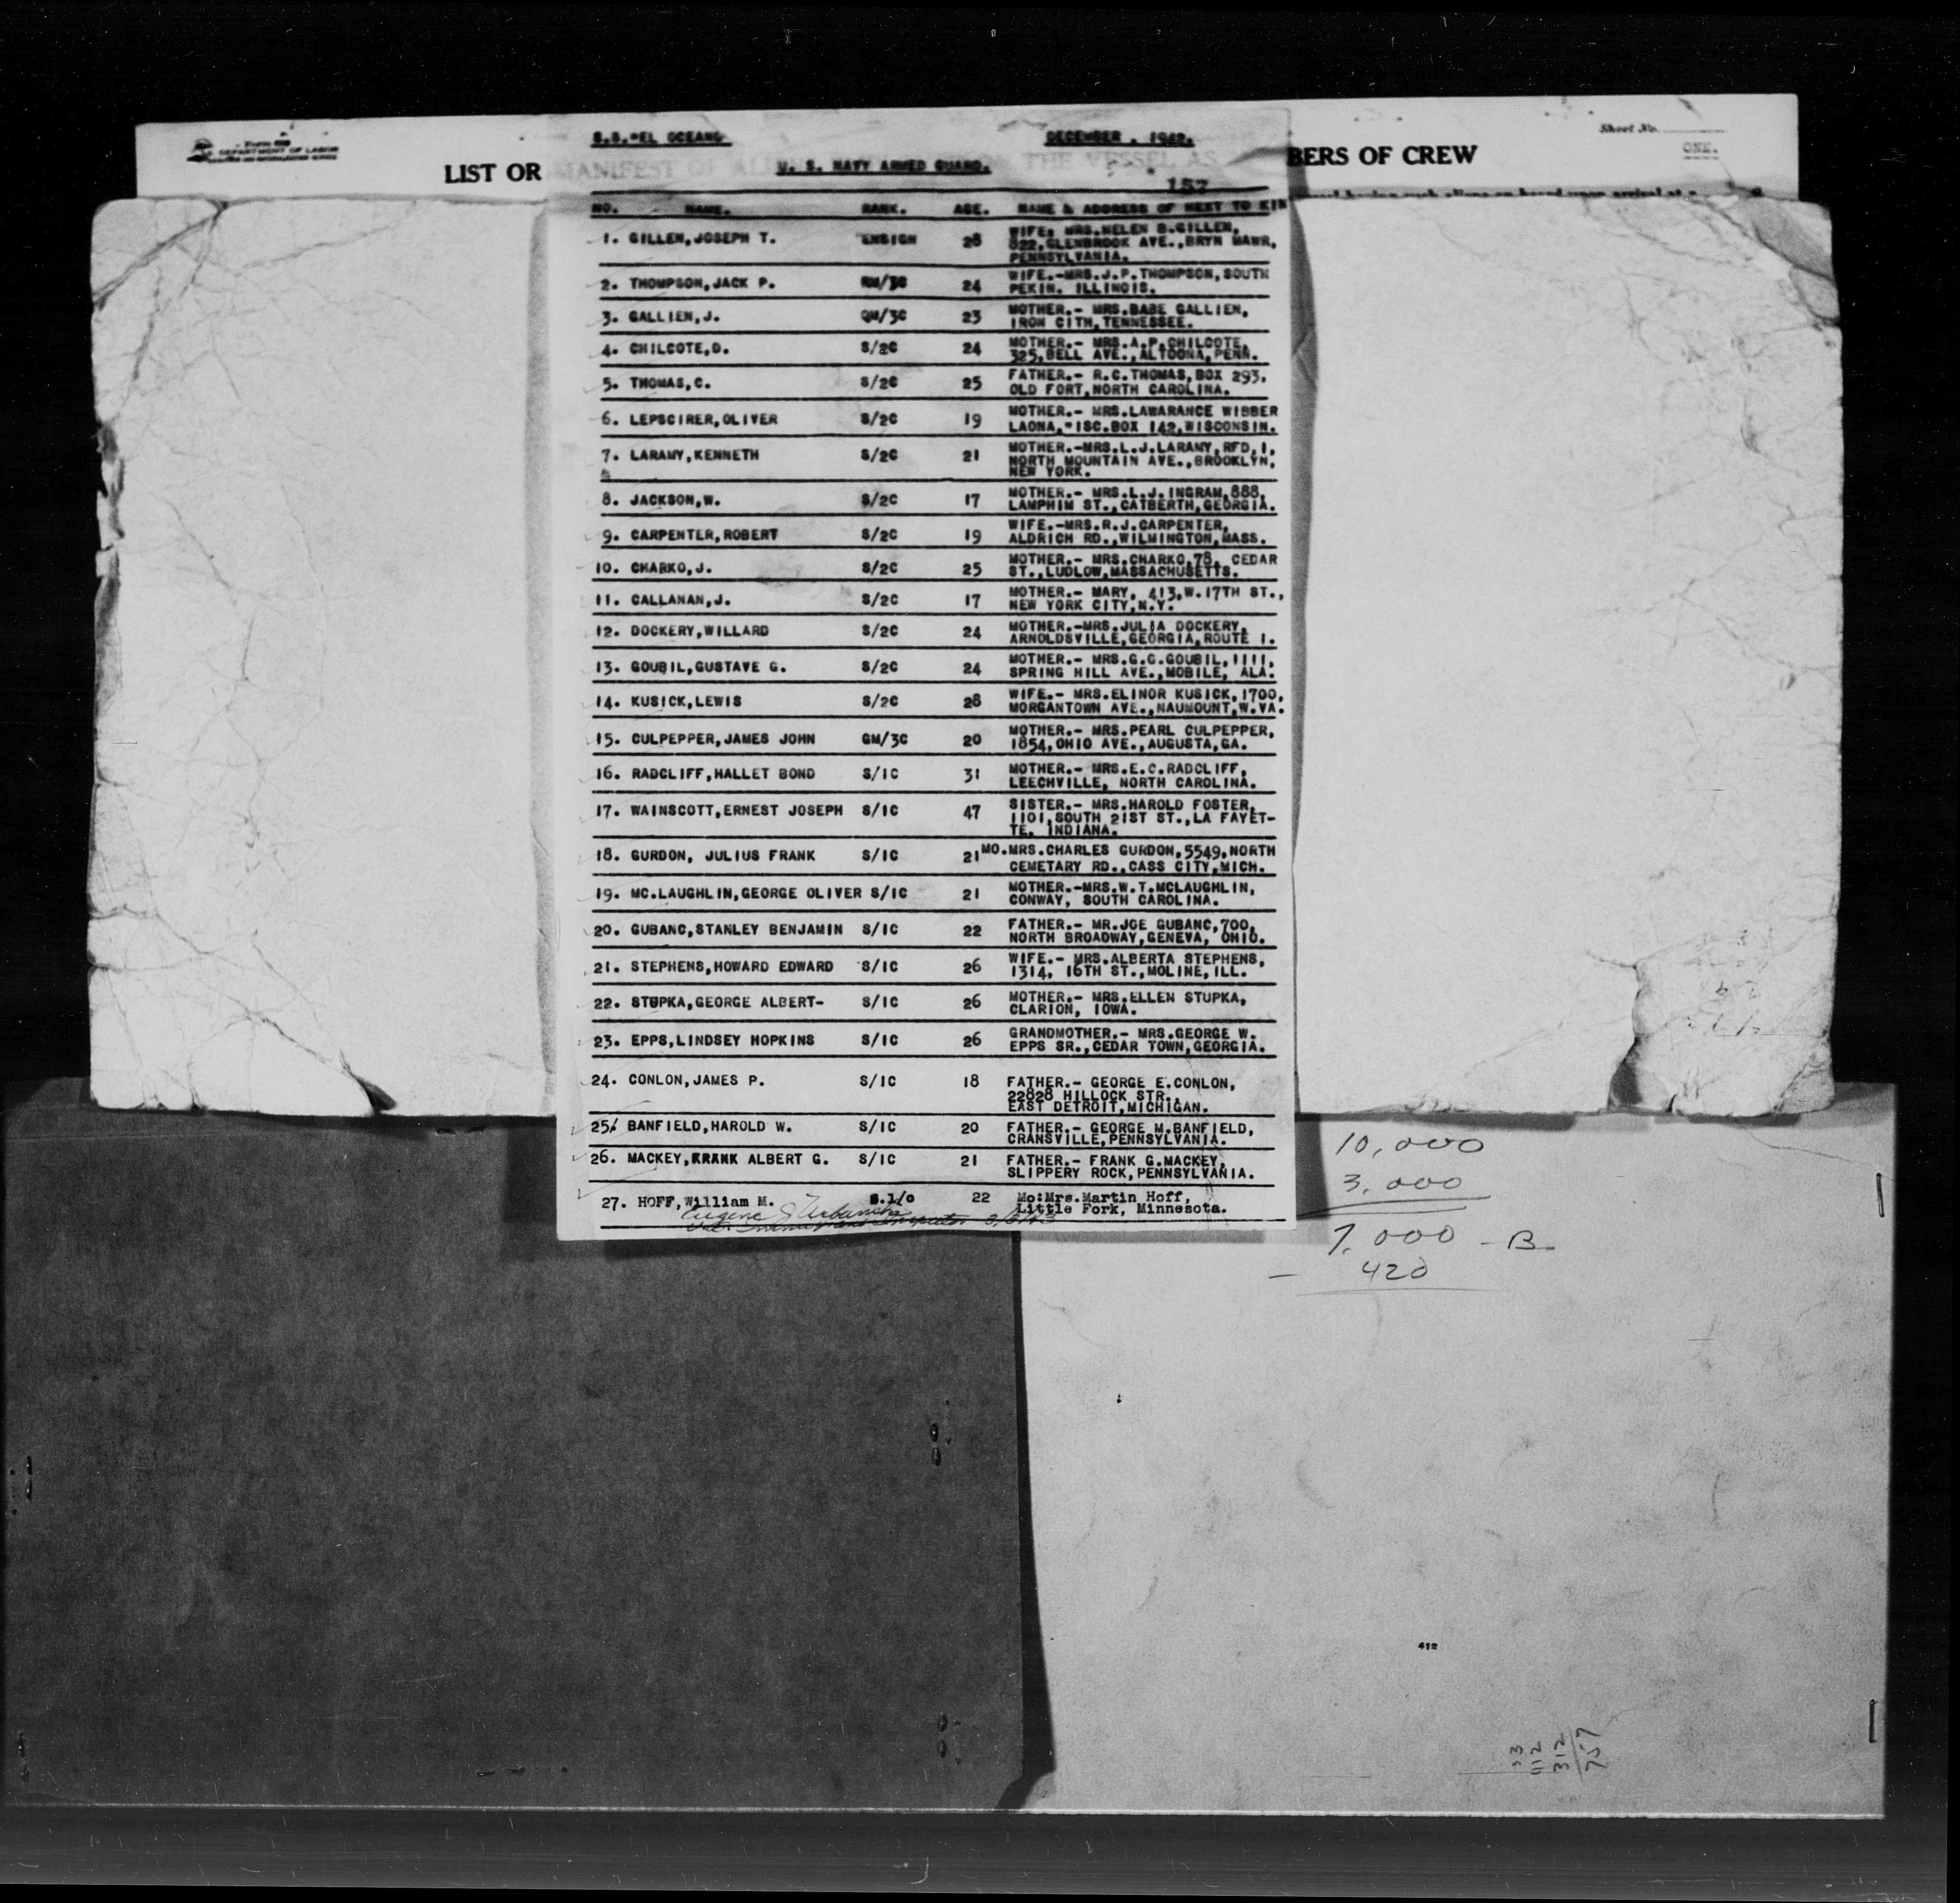 Sheet No.
ONE.
U.S. DEPARTMENT OF LABOR
LIST OR MANIFEST OF ALIENS THE VESSEL AS BERS OF CREW
S.S."EL OCEANO DECEMBER , 1942.
U. S. NAVY ARMED GUARD.
157
NO. NAME. RANK. AGE. NAME & ADDRESS OF NEXT TO KIN
1. GILLEN,JOSEPH T. ENSIGN 28 WIFE, MRS.HELEN B.GILLEN,
822,GLENBROOK AVE.,BRYN MAWR,
PENNSYLVANIA.
2. THOMPSON,JACK P. RM/3C 24 WIFE.-MRS.J.P.THOMPSON,SOUTH
PEKIN. ILLINOIS.
3. GALLIEN,J. QM/3C 23 MOTHER.- MRS.BABE GALLIEN,
IRON CITH,TENNESSEE.
4. CHILCOTE,D. S/2C 24 MOTHER.- MRS.A.P.CHILCOTE,
325,BELL AVE.,ALTOONA,PENN.
5. THOMAS,C. S/2C 25 FATHER.- R.C.THOMAS,BOX 293.
OLD FORT,NORTH CAROLINA.
6. LEPSCIRER,OLIVER S/2C 19 MOTHER.- MRS.LAWARANCE WIBBER
LAONA,"ISC.BOX 142,WISCONSIN.
7. LARAMY,KENNETH S/2C 21 MOTHER.-MRS.L.J.LARAMY,RFD,1,
NORTH MOUNTAIN AVE.,BROOKLYN,
NEW YORK.
8. JACKSON,W. S/2C 17 MOTHER.- MRS.L.J.INGRAM,888,
LAMPHIM ST.,CATBERTH,GEORGIA.
9. CARPENTER,ROBERT S/2C 19 WIFE.-MRS.R.J.CARPENTER,
ALDRICH RD.,WILMINGTON,MASS.
10. CHARKO,J. S/2C 25 MOTHER.- MRS.CHARKO,78, CEDAR
ST.,LUDLOW,MASSACHUSETTS.
11. CALLANAN,J. S/2C 17 MOTHER.- MARY, 413,W.17TH ST.,
NEW YORK CITY,N.Y.
12. DOCKERY,WILLARD S/2C 24 MOTHER.-MRS.JULIA DOCKERY,
ARNOLDSVILLE,GEORGIA,ROUTE 1.
13. GOUBIL,GUSTAVE G. S/2C 24 MOTHER.- MRS.G.G.GOUBIL,1111,
SPRING HILL AVE.,MOBILE, ALA.
14. KUSICK,LEWIS S/2C 28 WIFE.- MRS.ELINOR KUSICK,1700,
MORGANTOWN AVE.,NAUMOUNT,W.VA.
15. CULPEPPER,JAMES JOHN GM/3C 20 MOTHER.- MRS.PEARL CULPEPPER,
1854,OHIO AVE.,AUGUSTA,GA.
16. RADCLIFF,HALLET BOND S/1C 31 MOTHER.- MRS.E.C.RADCLIFF,
LEECHVILLE, NORTH CAROLINA.
17. WAINSCOTT,ERNEST JOSEPH S/1C 47 SISTER.- MRS.HAROLD FOSTER,
1101,SOUTH 21ST ST.,LA FAYET-
TE, INDIANA.
18. GURDON, JULIUS FRANK S/1C 21 MO.MRS.CHARLES GURDON,5549,NORTH
CEMETARY RD.,CASS CITY,MICH.
19. MC.LAUGHLIN,GEORGE OLIVER S/1C 21 MOTHER.-MRS.W.T.MCLAUGHLIN,
CONWAY, SOUTH CAROLINA.
20. GUBANC,STANLEY BENJAMIN S/1C 22 FATHER.- MR.JOE GUBANC,700,
NORTH BROADWAY,GENEVA, OHIO.
21. STEPHENS,HOWARD EDWARD S/1C 26 WIFE.- MRS.ALBERTA STEPHENS,
1314, 16TH ST.,MOLINE,ILL.
22. STUPKA,GEORGE ALBERT- S/1C 26 MOTHER.- MRS.ELLEN STUPKA,
CLARION, IOWA.
23. EPPS,LINDSEY HOPKINS S/1C 26 GRANDMOTHER.- MRS.GEORGE W.
EPPS SR.,CEDAR TOWN,GEORGIA.
24. CONLON,JAMES P. S/1C 18 FATHER.- GEORGE E.CONLON,
22828 HILLOCK STR.,
EAST DETROIT,MICHIGAN.
25. BANFIELD,HAROLD W. S/1C 20 FATHER.- GEORGE M.BANFIELD,
CRANSVILLE,PENNSYLVANIA.
26. MACKEY,FRANK ALBERT G. S/1C 21 FATHER.- FRANK G.MACKEY,
SLIPPERY ROCK,PENNSYLVANIA.
27. HOFF,William M. S.1/c 22 Mo:Mrs.Martin Hoff,
Little Fork, Minnesota.
Eugene
10,000
3,000
7,000 - B-
- 420
412
33
412
312
757